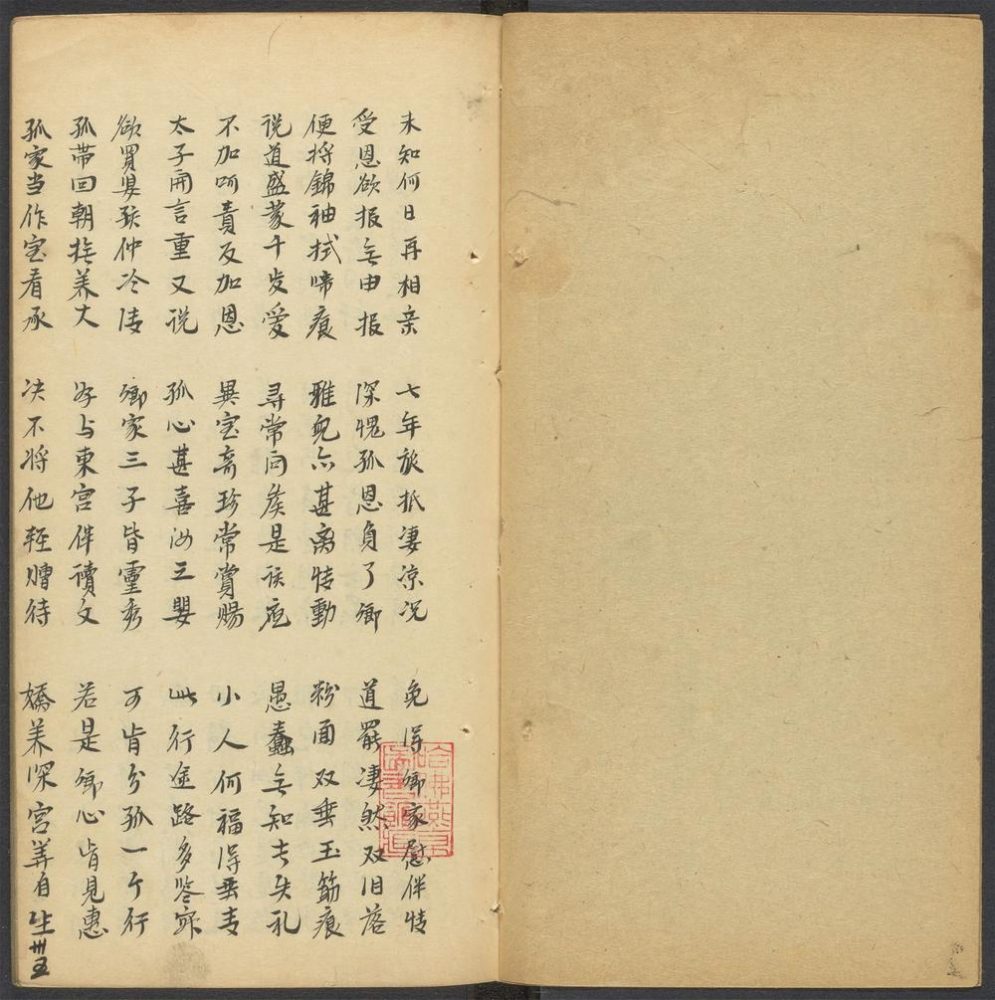 未知何日再相亲 七年旅抵凄凉况 免得卿家慰伴情
受恩欲报无由报 深愧孤恩负了卿 道罢凄然双泪落
便将锦袖拭啼痕 雅儿亦甚离情動 粉面双垂玉筯痕
说道盛蒙千岁爱 寻常问矣是该应 愚蠢无知去失礼
不加呵责反加恩 異宝奇珍常賞賜 小人何福得垂青
太子闻言重又说 孤心甚喜汝三嬰 此行途路多
欲買児孩仲冷清 卿家三子皆靈秀 可肯分孤一个行
孤带回朝抚养大 好与東宫伴讀文 若是卿心肯見惠
孤家当作宝看承 决不将他轻贈待 嬌养深宫差自生
卅五